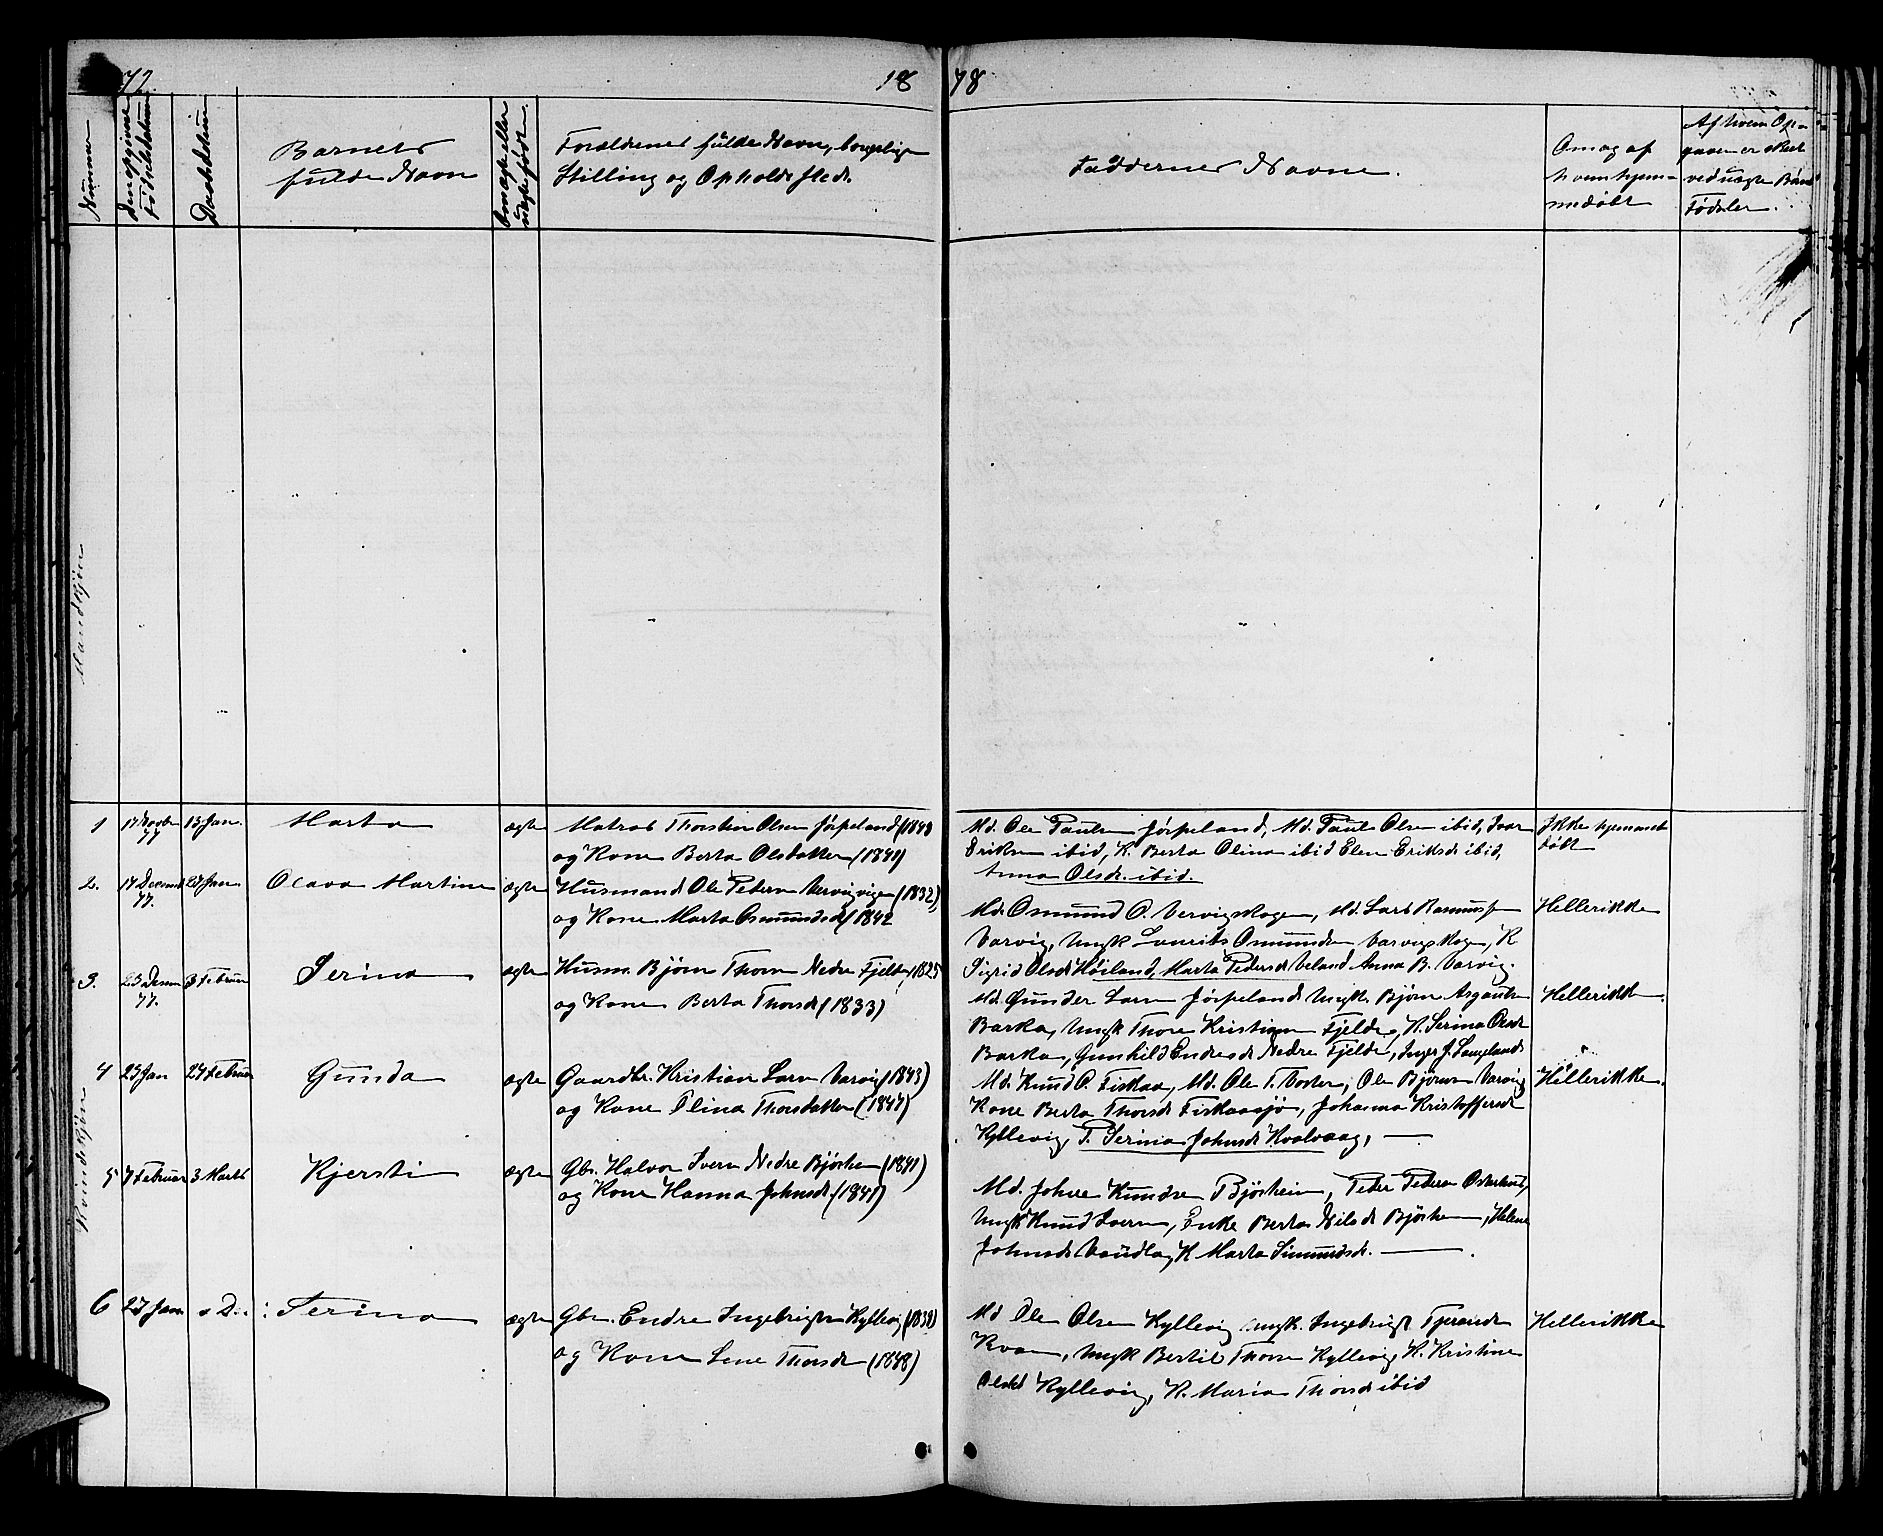 72.
18 78
Nummer
Den opgivne Fødselsdatum
Daabsdatum
Barnets
fulde Navn
Om ægte eller uægte født.
Forældrenes fulde Navn, borgerlige
Stilling og Opholdssted.
Faddernes Navne.
Om og af
hvem hjem-
medøbt
Af hvem Op-
gaven er skeet
ved uægte Børns
Fødsler.
Mandkjøn
Kvindekjøn
1 17 Novbr 77 13 Jan. Marta ægte Matros Thorsten Olsen Jørpeland (1848
og Kone Berta Olsdatter (1841)
Md. Ole Paulsen Jørpeland, Md. Paul Olsen ibid, Ivar
Eriksen ibid, K. Berta Olina ibid Elen Eriksd. ibid,
Anna Olsdr. ibid.
Ikke hjemme
døbt
2. 17 Decemb 77. 27 Jan. Olava Martine ægte Husmand Ole Pedersen (1832)
og Kone Marta Osmundsd (1842
Md. Osmund O. Vervigskogen, Md. Lars Rasmussen
Varvig, Ungk Laurits Osmundsen Varvigskogen, K
Sigrid Olsd Høiland, Marta Pedersd Veland Anna B. Varvig.
Hellerikke
3. 23 Decem 77. 3 Februar Serina ægte Husm. Bjørn Thorsen Nedre Fjelde, 1825
og Kone Berta Thorsd (1833)
Md. Gunder Larsen Jørpeland Ungk. Bjørn Asgautsen
Barka, Ungk Thore Kristiansen Fjelde, K. Serina Olsdr
Barka, Gunhild Endresd Nedre Fjelde, Inger J. Langeland
Hellerikke.
4 23 Jan 24 Februar Gunda ægte Gaardbr. Kristian Larsen Varvig (1843)
og Kone Elina Thorsdatter (1847)
Md. Knud O. Fiskaa, Md. Ole T. Voster, Ole Bjørnsen Varvig
Kone Berta Thorsd Fiskaasjø, Johanna Kristoffersd
Kyllevig, P. Serina Johnsd Kvalvaag,
Hellerikke.
5 7 Februar 3 Marts Kjersti ægte Gbr. Halvor Iversen Nedre Bjørheim (1841)
og Kone Hanna Johnsdr. (1841)
Md. Johne Knudsen Bjørheim, Peder Pedersen
Ungk Knud Iversen, Enke Berta Nilsdr Bjørheim, Helene
Johnsd K Marta Simundsdr.
6 27 Jan s D. Serina ægte Gbr. Endre Ingebrigtsen Kyllevig (1838)
og Kone Lene Thorsdr (1848)
Md Ole Olsen Kyllevig Ungk. Ingebrigt
Ungk Bertil Thorsen Kyllevig, K. Kristine
Olsd Kyllevig, K. Maria Thorsd ibid
Hellerikke